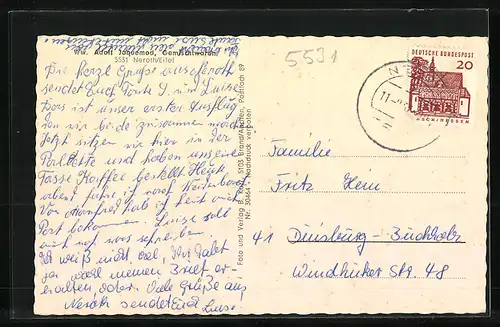 Ww. Adolf Jaquemod, Gemischtwaren
5531 Neroth/Eifel
Die herzl. Grüße aus Neroth
sendet Euch Tante S. und Luise
Das ist unser erster Ausflug
den wir beide zusammen machen
Jetzt sitzen wir hier in der
und haben uns eine
Tasse Kaffee bestellt. Heute
abend fahre ich nach
Von Manfred hab ich heut auch
Post bekommen. Luise soll
auch noch was schreiben.
Ich weiß nicht viel, Ihr habt
ja wohl meinen Brief er-
halten, oder. Viele Grüße aus
Neroth sendet Euch Luise.
Foto und Verlag B. 5105 Brand/Aachen, Postfach 89
Nr. 30464 · Nachdruck verboten
5531
DEUTSCHE BUNDESPOST
20
LORSCH HESSEN
Familie
Fritz Hein
41 Duisburg-Buchholz
Windhuker Str. 48